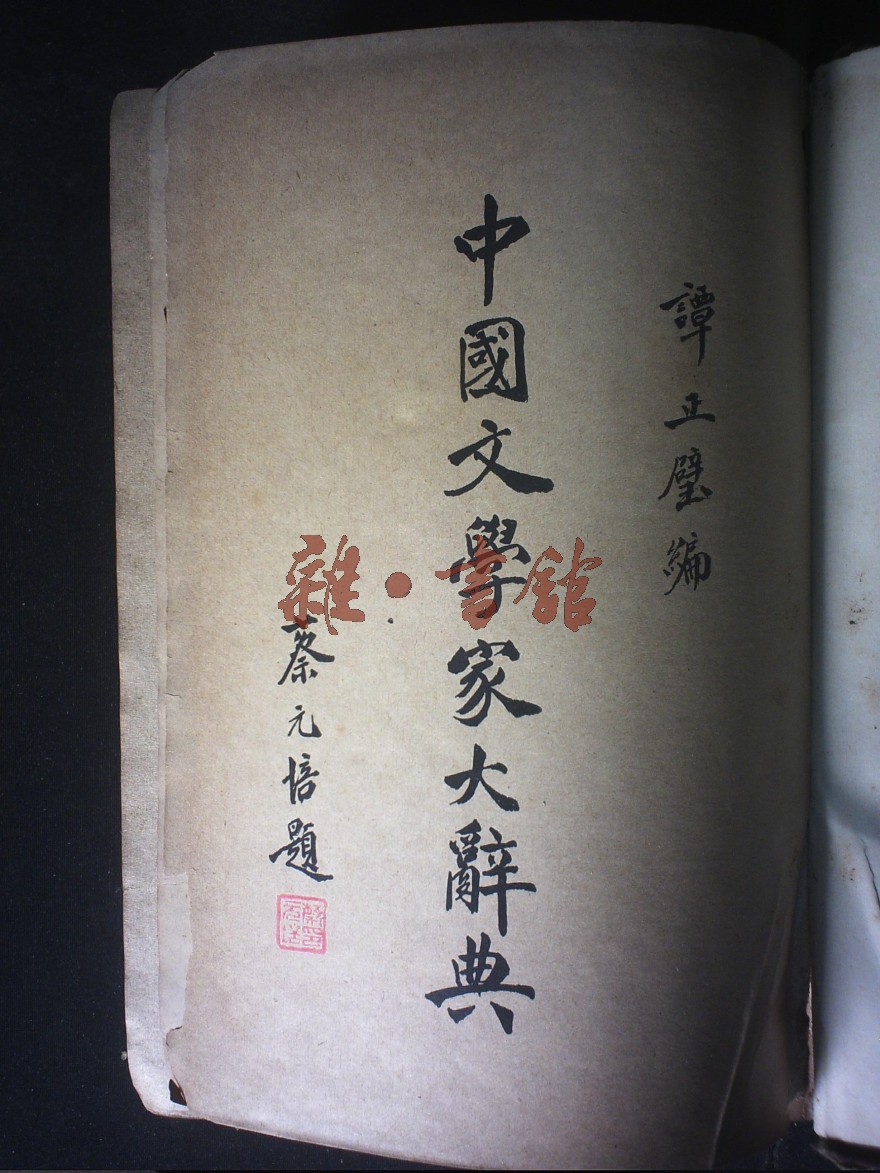 譚正璧編
中國文學家大辭典
蔡元培題
雜·書館